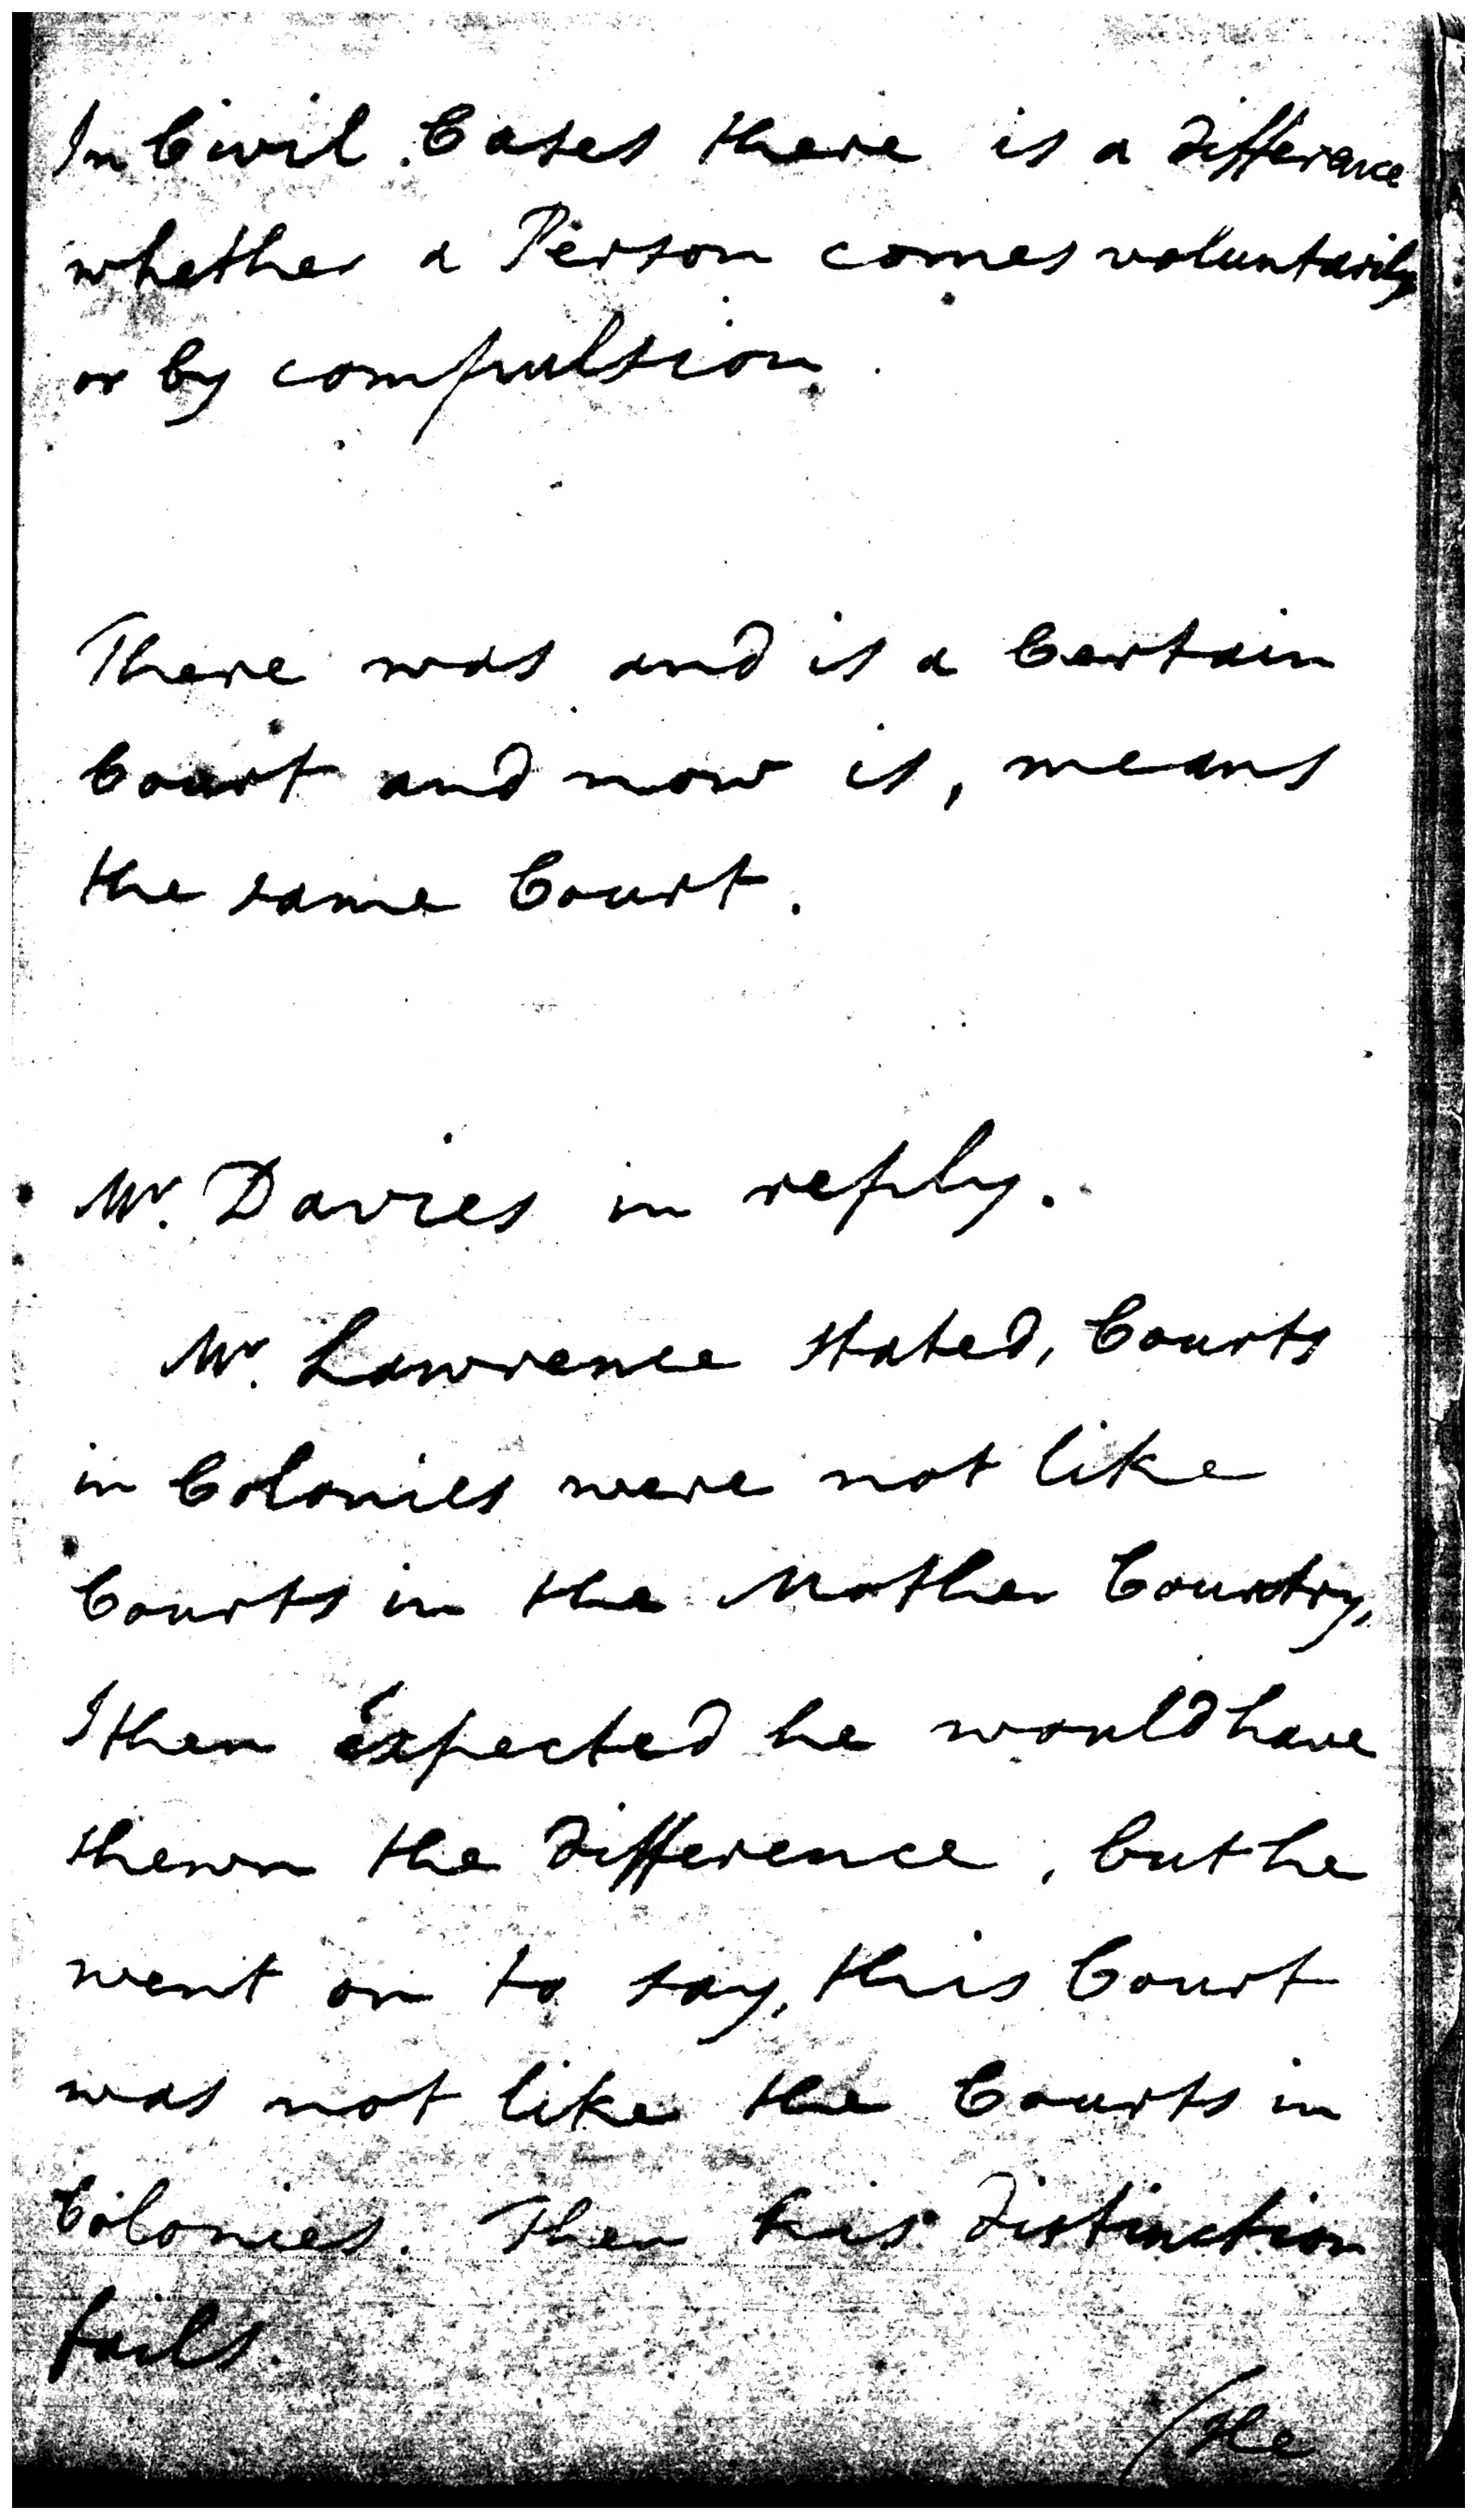 In Civil Cases there is a difference
whether a Person comes voluntarily
or by compulsion.
There was and is a Certain
Court and now is, means
the same Court.
Mr. Davies in reply.
Mr. Lawrence stated, Courts
in Colonies were not like
Courts in the Mother Country,
I then Expected he would have
shewn the difference, but he
went on to say, this Court
was not like the Courts in
Colonies. Then his distinction
fails.
/He